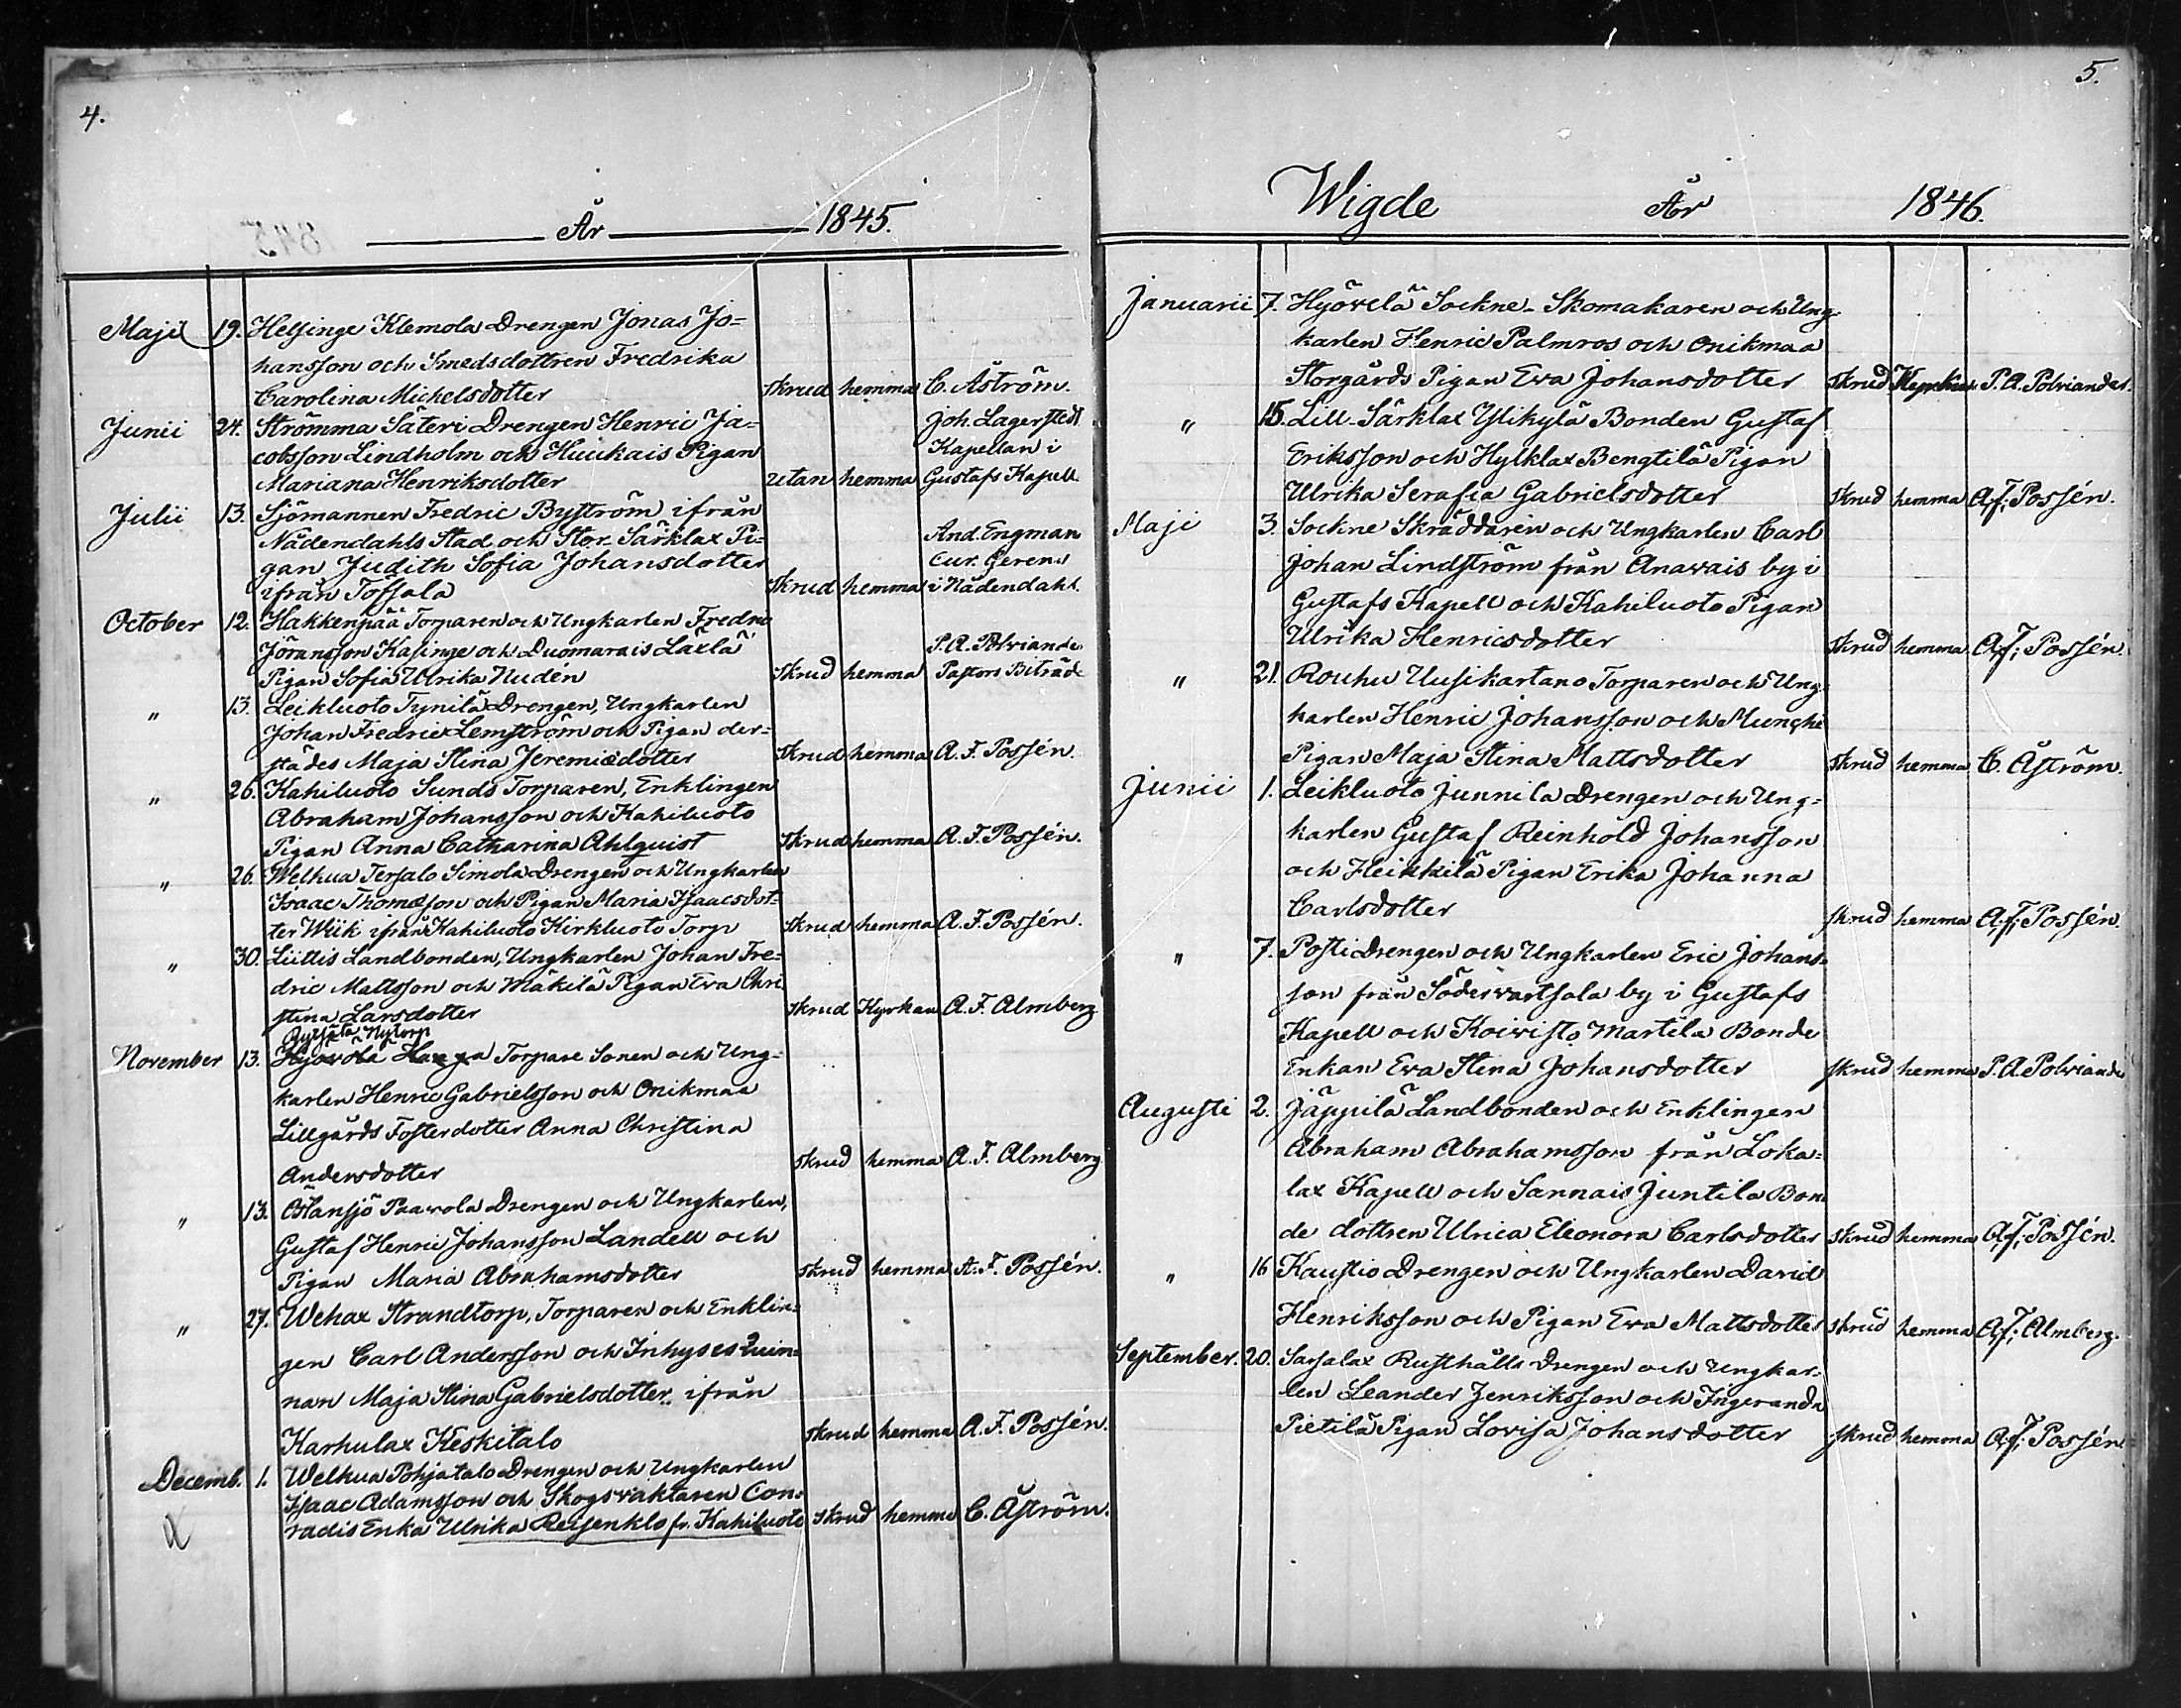 4.
År 1845.
Maji 19. Helsinge Klemola Drengen Jonas Jo=
hansson och Smedsdottren Fredrika
Carolina Michelsdotter skrud hemma C. Åström.
Junii 24. Strömma Säteri Drengen Henric Ja=
cobsson Lindholm och Huukais Pigan
Mariana Henriksdotter utan hemma Joh. Lagerstedt
Kapellan i
Gustafs Kapell
Julii 13. Sjömannen Fredric Byström ifrån
Nådendahls Stad och Stor Särklax Pi=
gan Judith Sofia Johansdotter
ifrån Töfsala skrud hemma And. Engman
Cur. Gerens
i Nådendahl.
October 12. Hakkenpää Torparen och Ungkarlen Fredric
Jöransson Kasinge och Duomarais Laxla
Pigan Sofia Ulrika Nudén skrud hemma P. A. Polviander
Pastors Biträde
" 13. Leikluoto Tynilä Drengen, Ungkarlen
Johan Fredric Lemström och Pigan der=
städes Maja Stina Jeremiædotter skrud hemma A. F. Possén.
" 26. Kahiluoto Sunds Torparen, Enklingen
Abraham Johansson och Kahiluoto
Pigan Anna Catharina Ahlquist skrud hemma A. F. Possén.
" 26. Welkua Tersalo Simola Drengen och Ungkarlen
Isaac Thomasson och Pigan Maria Isaacsdot=
ter Wiik ifrån Kahiluoto Kirkluoto Torp skrud hemma A. F. Possén.
" 30. Liettis Landbonden, Ungkarlen Johan Fre=
dric Mattsson och Mäkilä Pigan Eva Chri
stina Larsdotter skrud Kyrkan A. F. Almberg
Nytorp
November 13. Torpare Sonen och Ung=
karlen Henric Gabrielsson och Onikmaa
Lillgårds Fosterdotter Anna Christina
Andersdotter skrud hemma A. F. Almberg
" 13. Östansjö Paavola Drengen och Ungkarlen,
Gustaf Henric Johansson Landell och
Pigan Maria Abrahamsdotter skrud hemma A. F. Possén.
" 27. Wehax Strandtorp, Torparen och Enklin=
gen Carl Andersson och Inhyses Quin=
nan Maja Stina Gabrielsdotter ifrån
Karhulax Keskitalo skrud hemma A. F. Possén.
Decemb. 1. Welkua Pohjatalo Drengen och Ungkarlen
Isaac Adamsson och Skogsvaktaren Con=
radis Enka Ulrika Reisenklo fr. Kahiluoto skrud hemma C. Åström.
5.
Wigde År 1846.
Januarii 7. Hyövelä Sockne-Skomakaren och Ung=
karlen Henric Palmros och Onikmaa
Storgårds Pigan Eva Johansdotter skrud Kyrkan P. A. Polviander.
" 15. Lill-Särklax Ylikylä Bonden Gustaf
Eriksson och Hylklax Bengtilä Pigan
Ulrika Serafia Gabrielsdotter skrud hemma A. F. Possén.
Maji 3. Sockne Skräddaren och Ungkarlen Carl
Johan Lindström från Anavais by i
Gustafs Kapell och Kahiluoto Pigan
Ulrika Henricsdotter skrud hemma A. F. Possén.
" 21. Rouhu Uusikartano Torparen och Ung=
karlen Henric Johansson och Munghi
Pigan Maja Stina Mattsdotter skrud hemma C. Åström.
Junii 1. Leikluoto Junnila Drengen och Ung=
karlen Gustaf Reinhold Johansson
och Heikkilä Pigan Erika Johanna
Carlsdotter skrud hemma A. F. Possén.
" 7. Posti Drengen och Ungkarlen Eric Johans=
son från Södervartsala by i Gustafs
Kapell och Koivisto Martela Bonde
Enkan Eva Stina Johansdotter skrud hemma P. A. Polviander
Augusti 2. Jäppilä Landbonden och Enklingen
Abraham Abrahamsson från Loka=
lax Kapell och Sannais Juntila Bon
de dottren Ulrica Eleonora Carlsdotter skrud hemma A. F. Possén.
" 16 Kaustio Drengen och Ungkarlen David
Henriksson och Pigan Eva Mattsdotter skrud hemma A. F. Almberg.
September. 20. Sarsalax Rusthålls Drengen och Ungkar=
len Leander Henriksson och Ingeranda
Pietilä Pigan Lovisa Johansdotter skrud hemma A. F. Possén